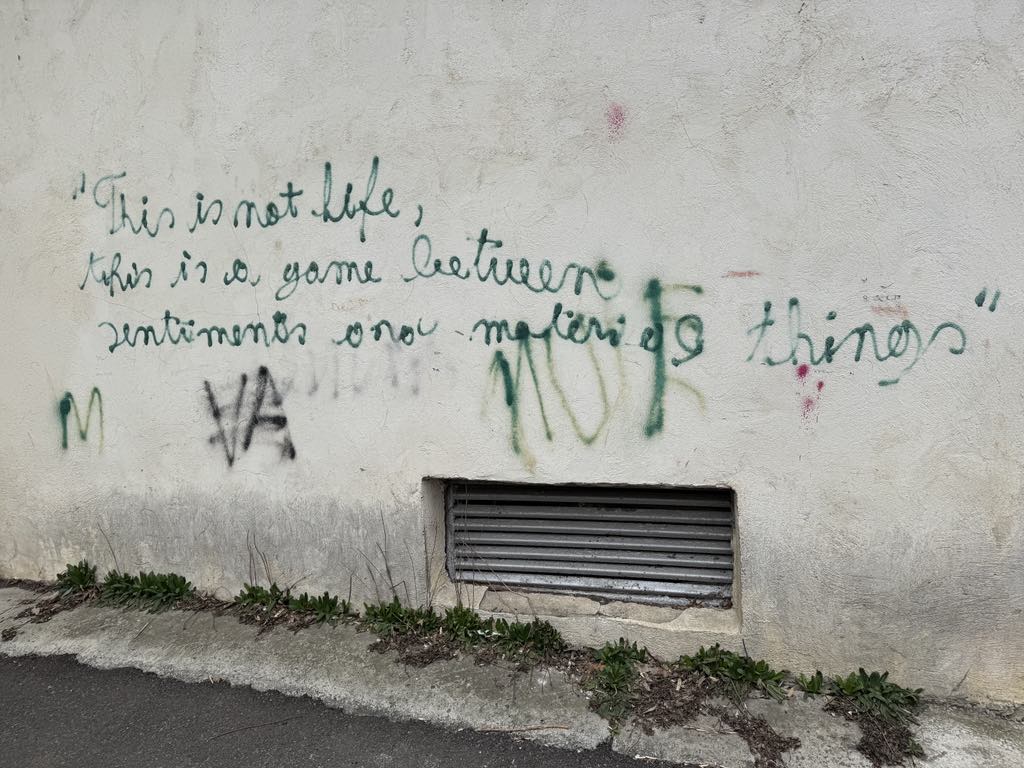 "This is not life,
this is a game between
sentiments and materials things"
M VA